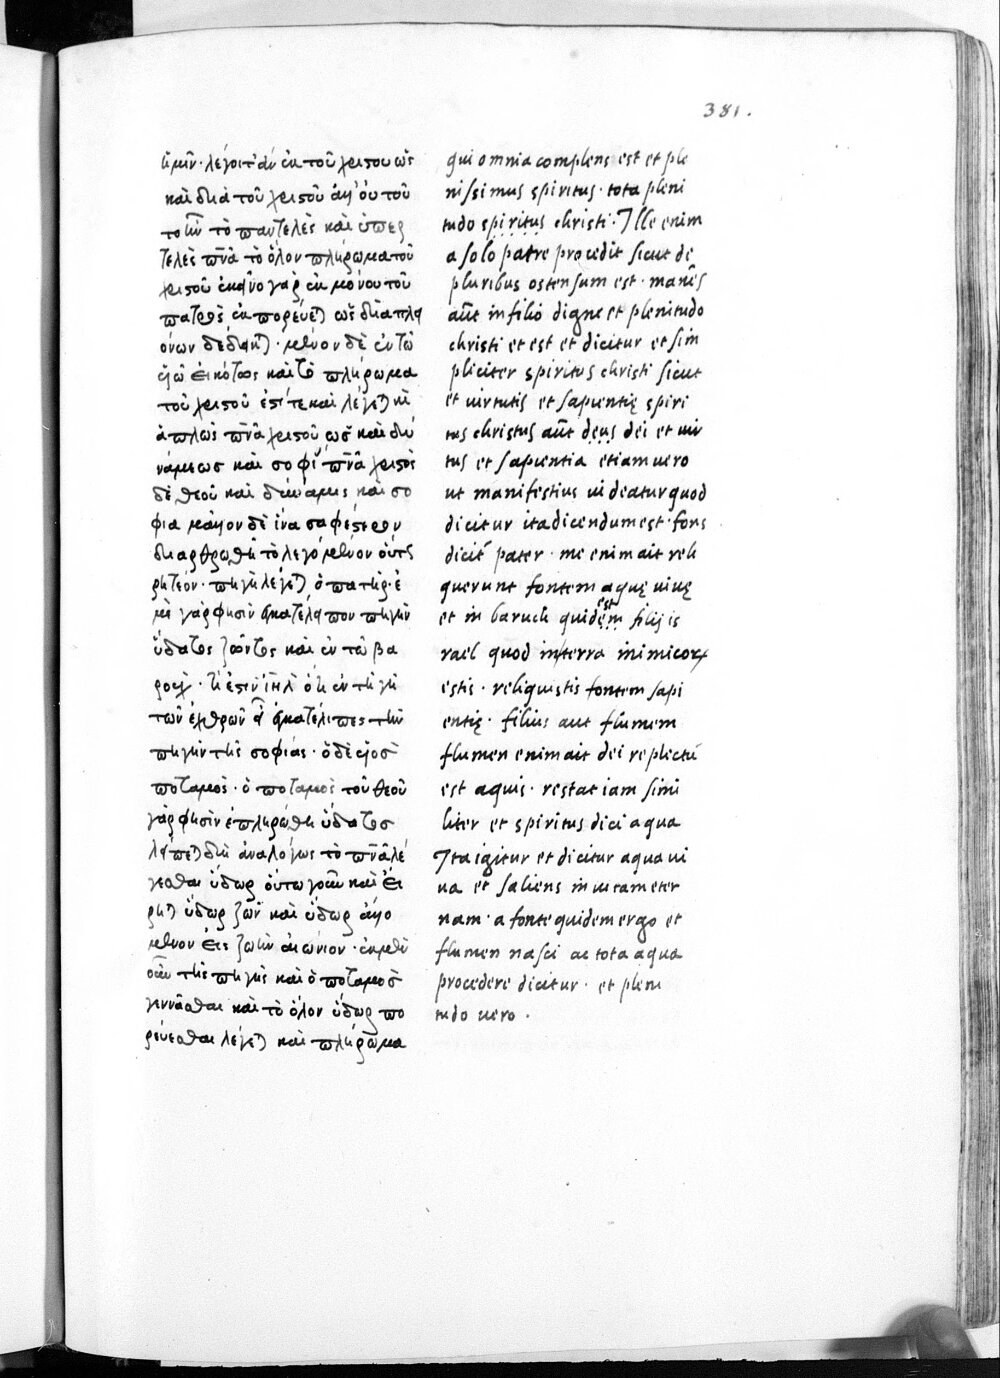 381.
ἡμῖν· λέγοιτ' ἂν ἐκ τοῦ χριστοῦ ὡς
καὶ διὰ τοῦ χριστοῦ ἀφ' οὗ τοῦ
τὸ παντελὲς καὶ ὑπερ
τελὲς πνᾶ τὸ ὅλον πλήρωμα τοῦ
χριστοῦ ἐκεῖνο γὰρ ἐκ μόνου τοῦ
πατρὸς ἐκπορεύε) ὡς διὰ πλει
όνων δέδεικ)· μένον δὲ ἐν τῶ
υἱῶ εἰκότως καὶ τὸ πλήρωμα
τοῦ χριστοῦ ἐστί τε καὶ λέγε) καὶ
ἁπλῶς πνᾶ χριστοῦ ὡς καὶ δυ
νάμεως καὶ σοφί πνᾶ χριστὸς
δὲ θεοῦ καὶ δύναμις καὶ σο
φια μᾶλλον δὲ ἵνα σαφέστερον
διαρθρωθῆ τὸ λεγόμενον οὕτως
ρητέον· πηγὴ λέγε) ὁ πατήρ· ἐ
μὲ γάρ φησιν ἐγκατέλειπον πηγὴν
ὕδατος ζῶντος καὶ ἐν τῶ βα
ρούχ· τί ἐστιν ἰηλ ὅτι ἐν τῆ γῆ
τῶν ἐχθρῶν εἶ ἐγκατέλιπες τὴν
πηγὴν τῆς σοφίας· ὁ δὲ υἱὸς
ποταμὸς· ὁ ποταμὸς τοῦ θεοῦ
γάρ φησιν ἐπληρώθη ὑδάτος
λείπε) δὴ ἀναλόγως τὸ πνᾶ λέ
γεσθαι ὕδωρ οὕτω γοῦν καὶ εἴ
ρη) ὕδωρ ζῶν καὶ ὕδωρ ἁλλό
μενον εἰς ζωὴν αἰώνιον· ἐκ μὲν
οὖν τῆς πηγῆς καὶ ὁ ποταμὸς
γεννᾶσθαι καὶ τὸ ὅλον ὕδωρ πο
ρεύεσθαι λέγε) καὶ πλήρωμα
qui omnia complens est et ple
nissimus spiritus· tota pleni
tudo spiritus christi· Ille enim
a solo patre procedit sicut de
pluribus ostensum est· manēs
aūt in filio digne et plenitudo
christi et est et dicitur et sim
pliciter spiritus christi sicut
et uirtutis et sapientię spiri
tus christus aūt deus dei et uir
tus et sapientia etiam uero
ut manifestius uideatur quod
dicitur ita dicendum est· fons
dicit̄ pater· me enim ait reli
querunt fontem aquę uiuę
et in baruch quidem est filij is
rael quod in terra inimicoꝝ
estis· reliquistis fontem sapi
entię· filius aut flumen
flumen enim ait dei repletū
est aquis· restat iam simi
liter et spiritus dici aqua
Ita igitur et dicitur aqua ui
ua et saliens in uitam eter
nam· a fonte quidem ergo et
flumen nasci ac tota aqua
procedere dicitur· et pleni
tudo uero·